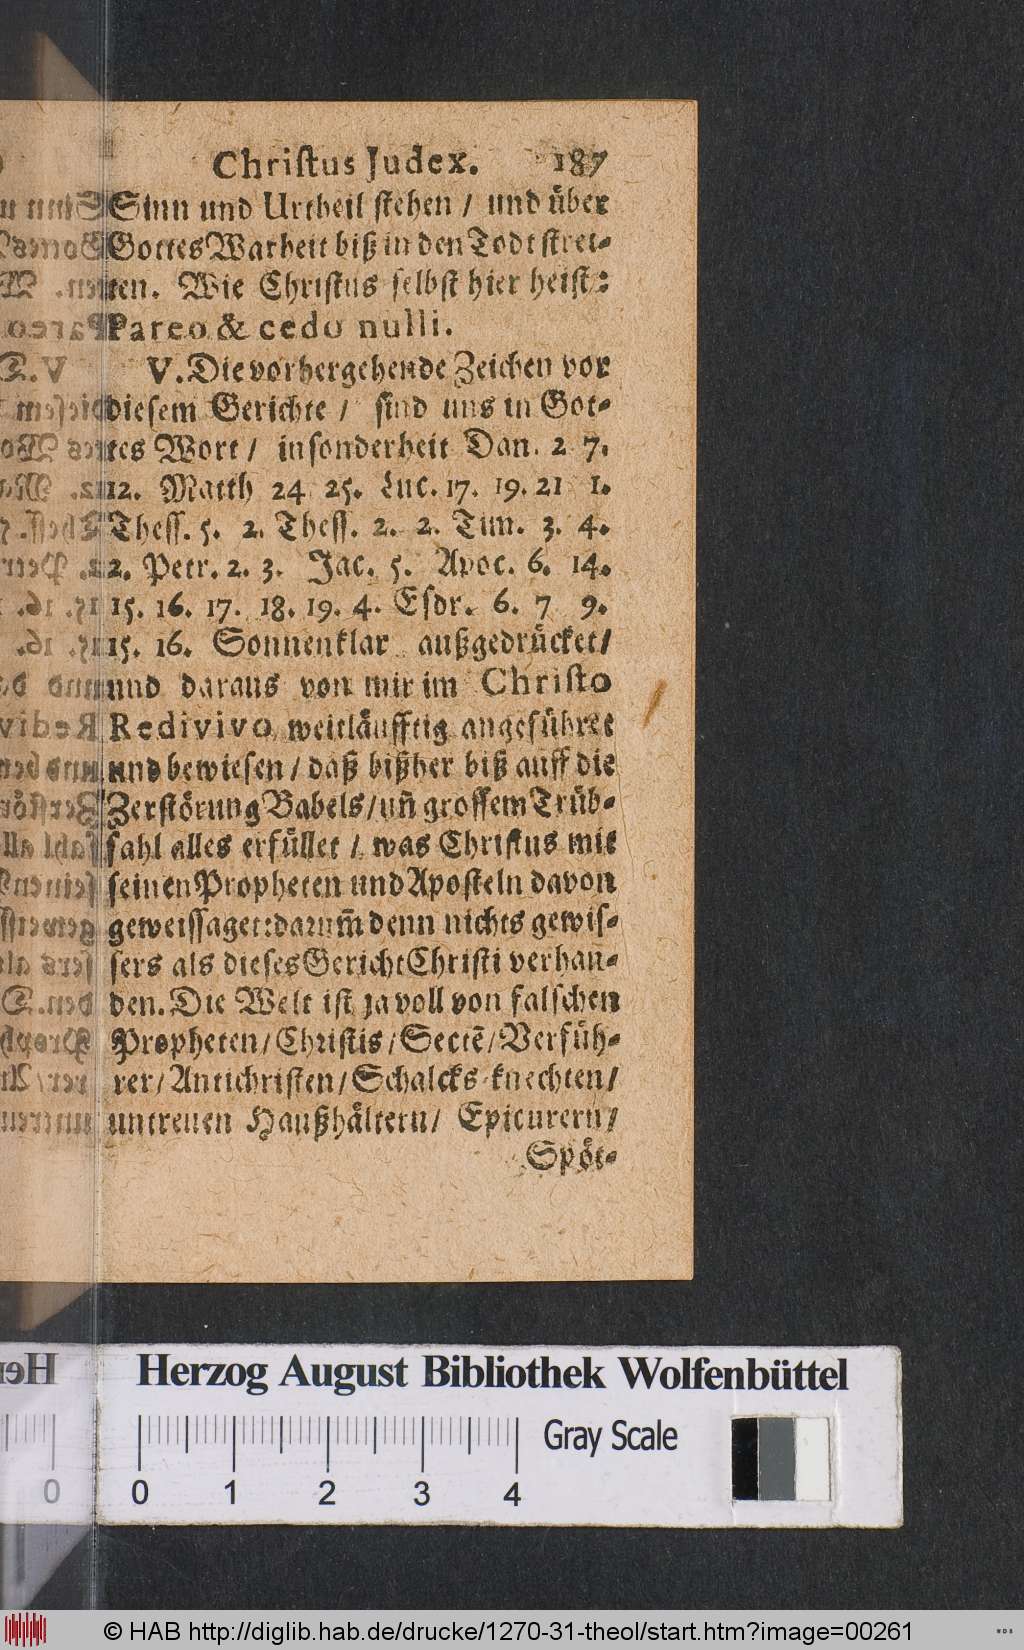 Christus Judex. 187
Sinn und Urtheil stehen / und über
Gottes Warheit biß in den Todt strei-
ten. Wie Christus selbst hier heist:
Pareo & cedo nulli.
V. Die vorhergehende Zeichen vor
diesem Gerichte / sind uns in Got-
tes Wort / insonderheit Dan. 2 7.
12. Matth 24 25. Luc. 17. 19. 21 1.
Thess. 5. 2. Thess. 2. 2. Tim. 3. 4.
2. Petr. 2. 3. Jac. 5. Apoc. 6. 14.
15. 16. 17. 18. 19. 4. Esdr. 6. 7 9.
15. 16. Sonnenklar außgedrücket /
und daraus von mir im Christo
Redivivo weitläufftig angeführet
und bewiesen / daß bißher biß auff die
Zerstörung Babels / uñ grossem Trüb-
sahl alles erfüllet / was Christus mit
seinen Propheten und Aposteln davon
geweissaget: darum̃ denn nichts gewis-
sers als dieses Gericht Christi verhan-
den. Die Welt ist ja voll von falschen
Propheten / Christis / Sectẽ / Verfüh-
rer / Antichristen / Schalcks-knechten /
untreuen Haußhältern / Epicurern /
Spöt-
Herzog August Bibliothek Wolfenbüttel
Gray Scale
0 1 2 3 4
© HAB http://diglib.hab.de/drucke/1270-31-theol/start.htm?image=00261